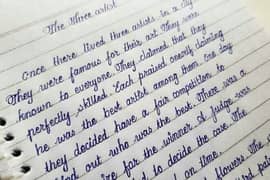 The three artist
Once there lived three artists in a city
They were famous for their art. They were
known to everyone. They claimed that they
perfectly skilled. Each praised onerly claiming
he was the best artist among them. One day
they decided have a fair competition to
out who was the best. There was a
for the winner. A judge was
to decide the case. The
on time.
flowers. The